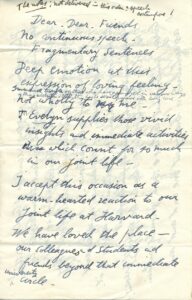 The notes, not delivered — this
Dear, Dear, Friends
No continuous speech.
Fragmentary Sentences
Deep emotion at this
expression of loving feeling
not wholly to me —
Evelyn supplies those vivid
insights and immediate activities
which count for so much
in our joint life.
I accept this occasion as a
warm-hearted reaction to our
joint life at Harvard.
We have loved the place —
our colleagues & students and
friends beyond that immediate
circle.